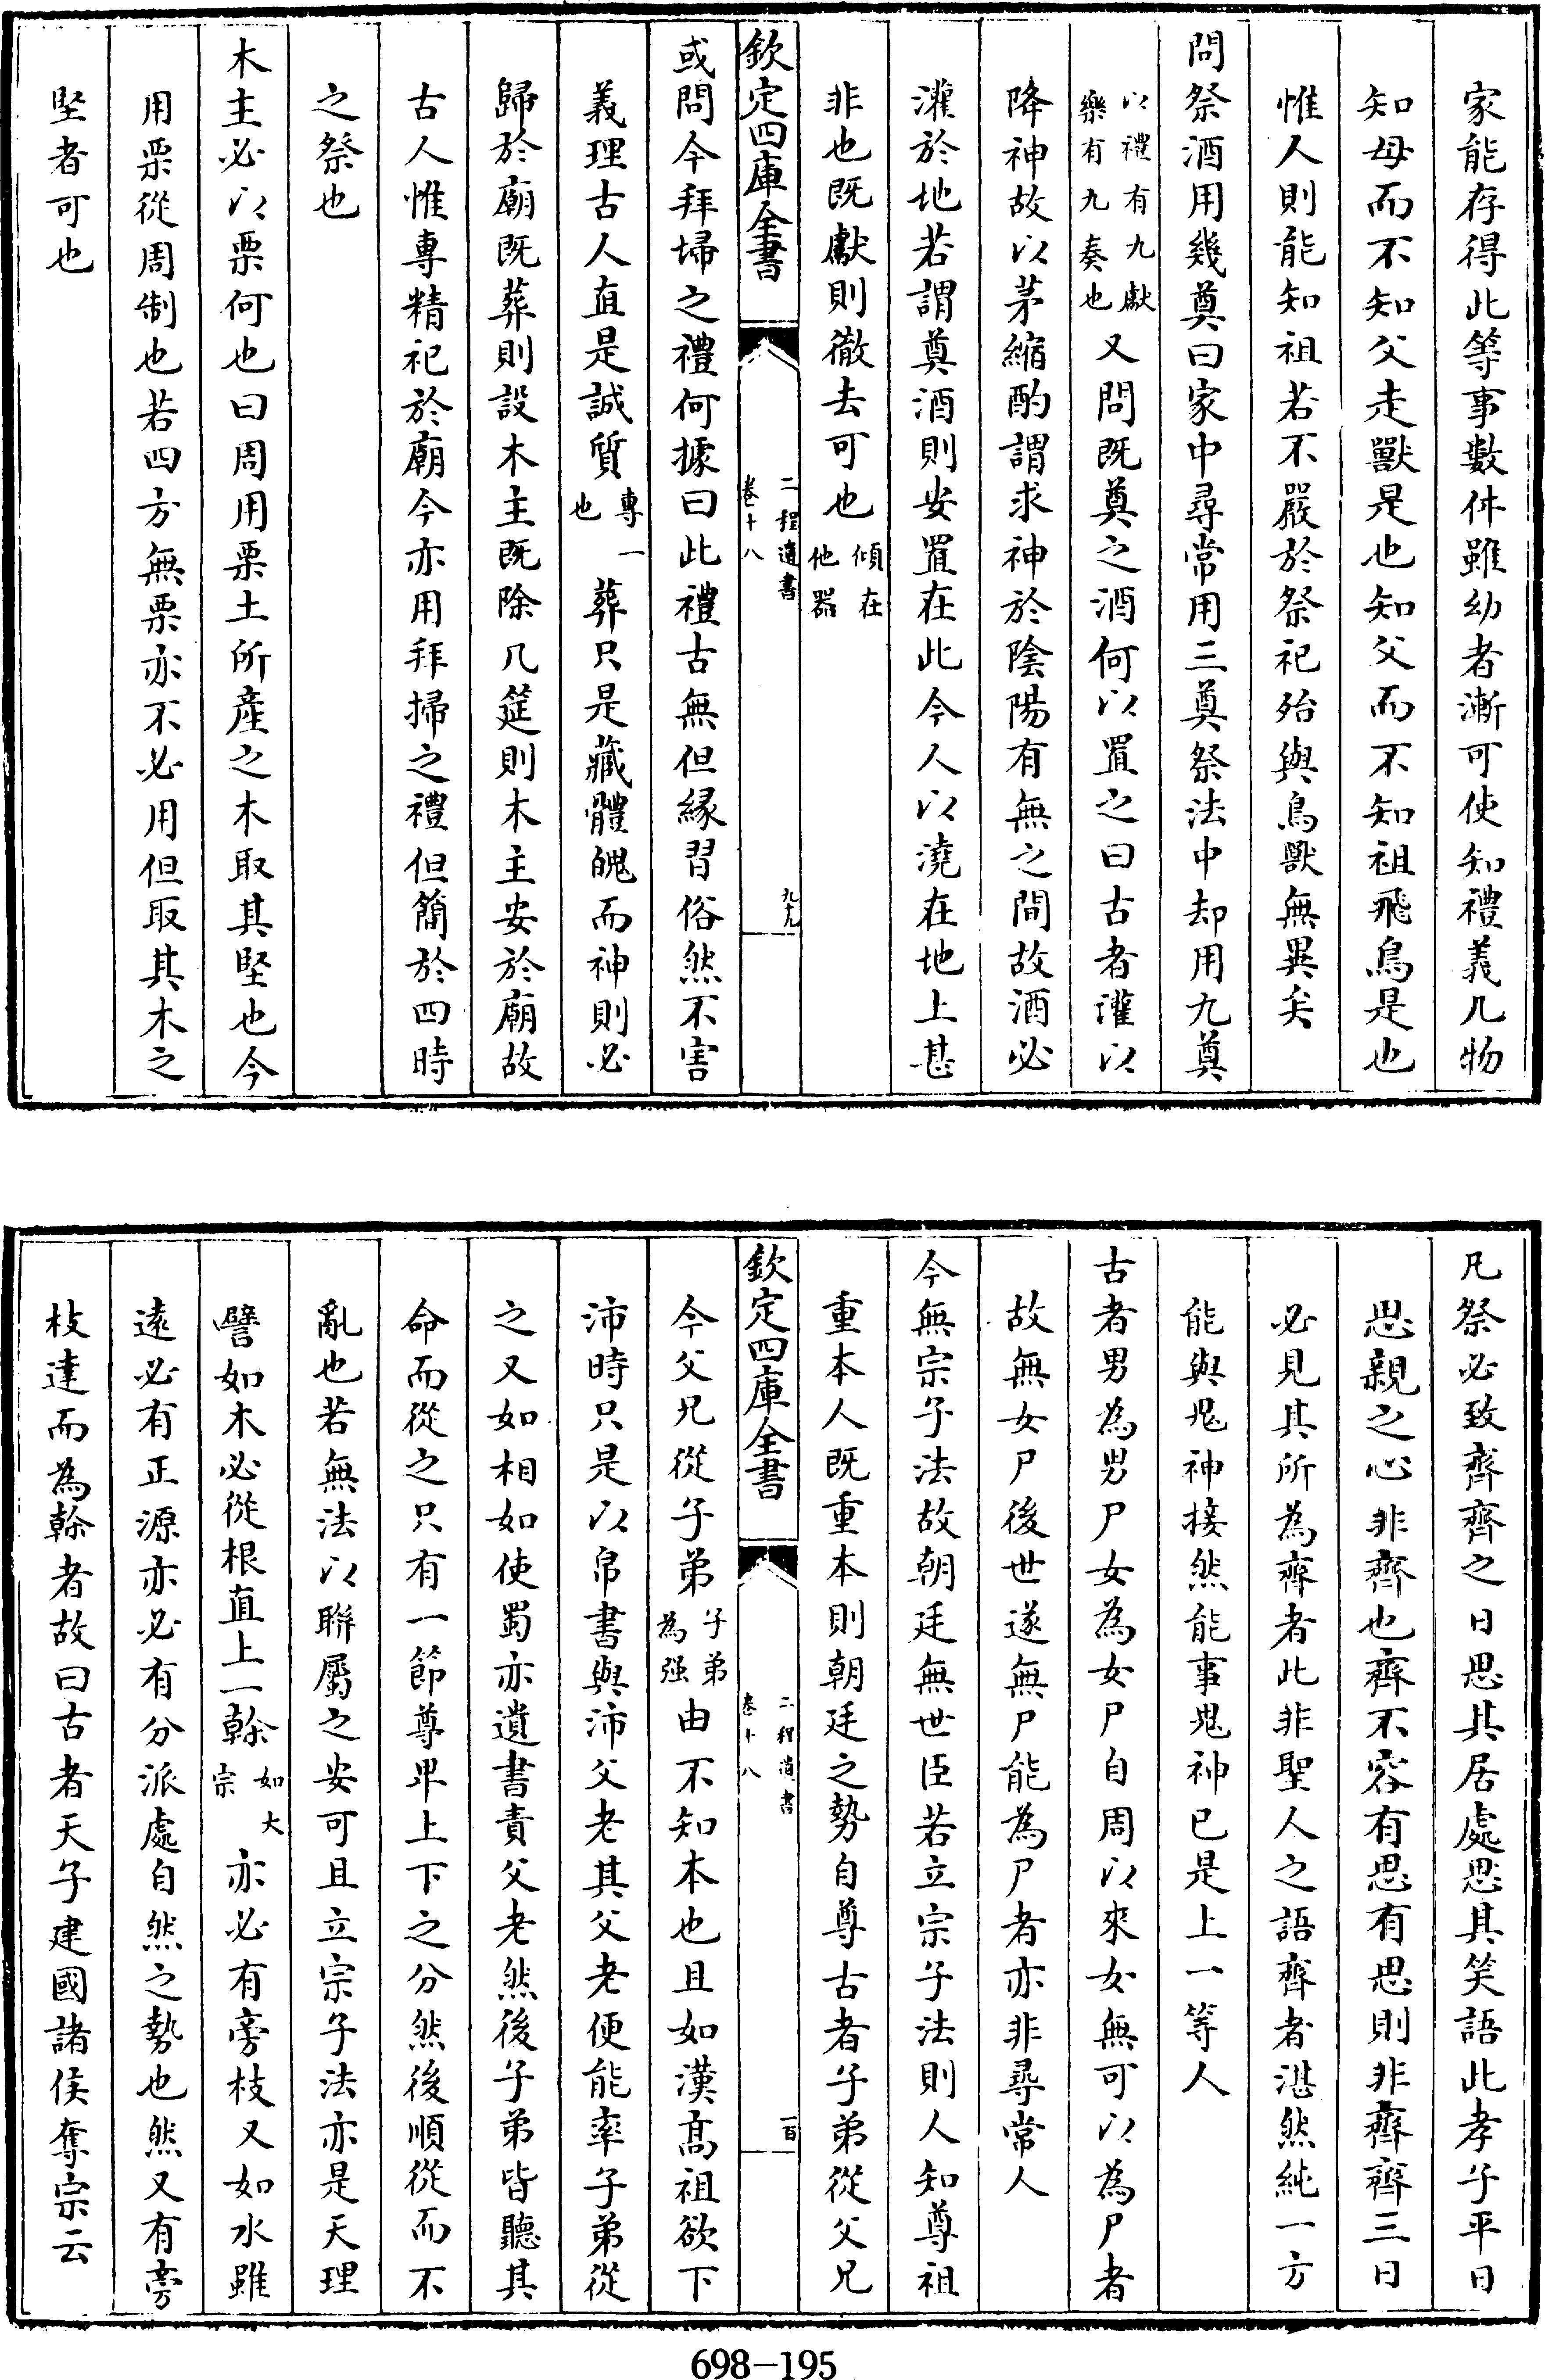 家能存得此等事數件雖幼者漸可使知禮義凡物
知母而不知父走獸是也知父而不知祖飛鳥是也
惟人則能知祖若不嚴於祭祀殆與鳥獸無異矣
問祭酒用幾奠曰家中尋常用三奠祭法中却用九奠
以禮有九獻樂有九奏也又問既奠之酒何以置之曰古者灌以
降神故以茅縮酌謂求神於陰陽有無之間故酒必
灌於地若謂奠酒則安置在此今人以澆在地上甚
非也既獻則徹去可也傾在他器
欽定四庫全書 二程遺書卷十八 九十九
或問今拜埽之禮何據曰此禮古無但緣習俗然不害
義理古人直是誠質專一也葬只是藏體魄而神則必
歸於廟既葬則設木主既除几筵則木主安於廟故
古人惟專精祀於廟今亦用拜掃之禮但簡於四時
之祭也
木主必以栗何也曰周用栗土所產之木取其堅也今
用栗從周制也若四方無栗亦不必用但取其木之
堅者可也
凡祭必致齊齊之日思其居處思其笑語此孝子平日
思親之心非齊也齊不容有思有思則非齊齊三日
必見其所為齊者此非聖人之語齊者湛然純一方
能與鬼神接然能事鬼神已是上一等人
古者男為男尸女為女尸自周以來女無可以為尸者
故無女尸後世遂無尸能為尸者亦非尋常人
今無宗子法故朝廷無世臣若立宗子法則人知尊祖
重本人既重本則朝廷之勢自尊古者子弟從父兄
欽定四庫全書 二程遺書卷十八 一百
今父兄從子弟子弟為强由不知本也且如漢高祖欲下
沛時只是以帛書與沛父老其父老便能率子弟從
之又如相如使蜀亦遺書責父老然後子弟皆聽其
命而從之只有一節尊卑上下之分然後順從而不
亂也若無法以聯屬之安可且立宗子法亦是天理
譬如木必從根直上一榦如大宗亦必有旁枝又如水雖
遠必有正源亦必有分派處自然之勢也然又有旁
枝達而為榦者故曰古者天子建國諸侯奪宗云
698-195